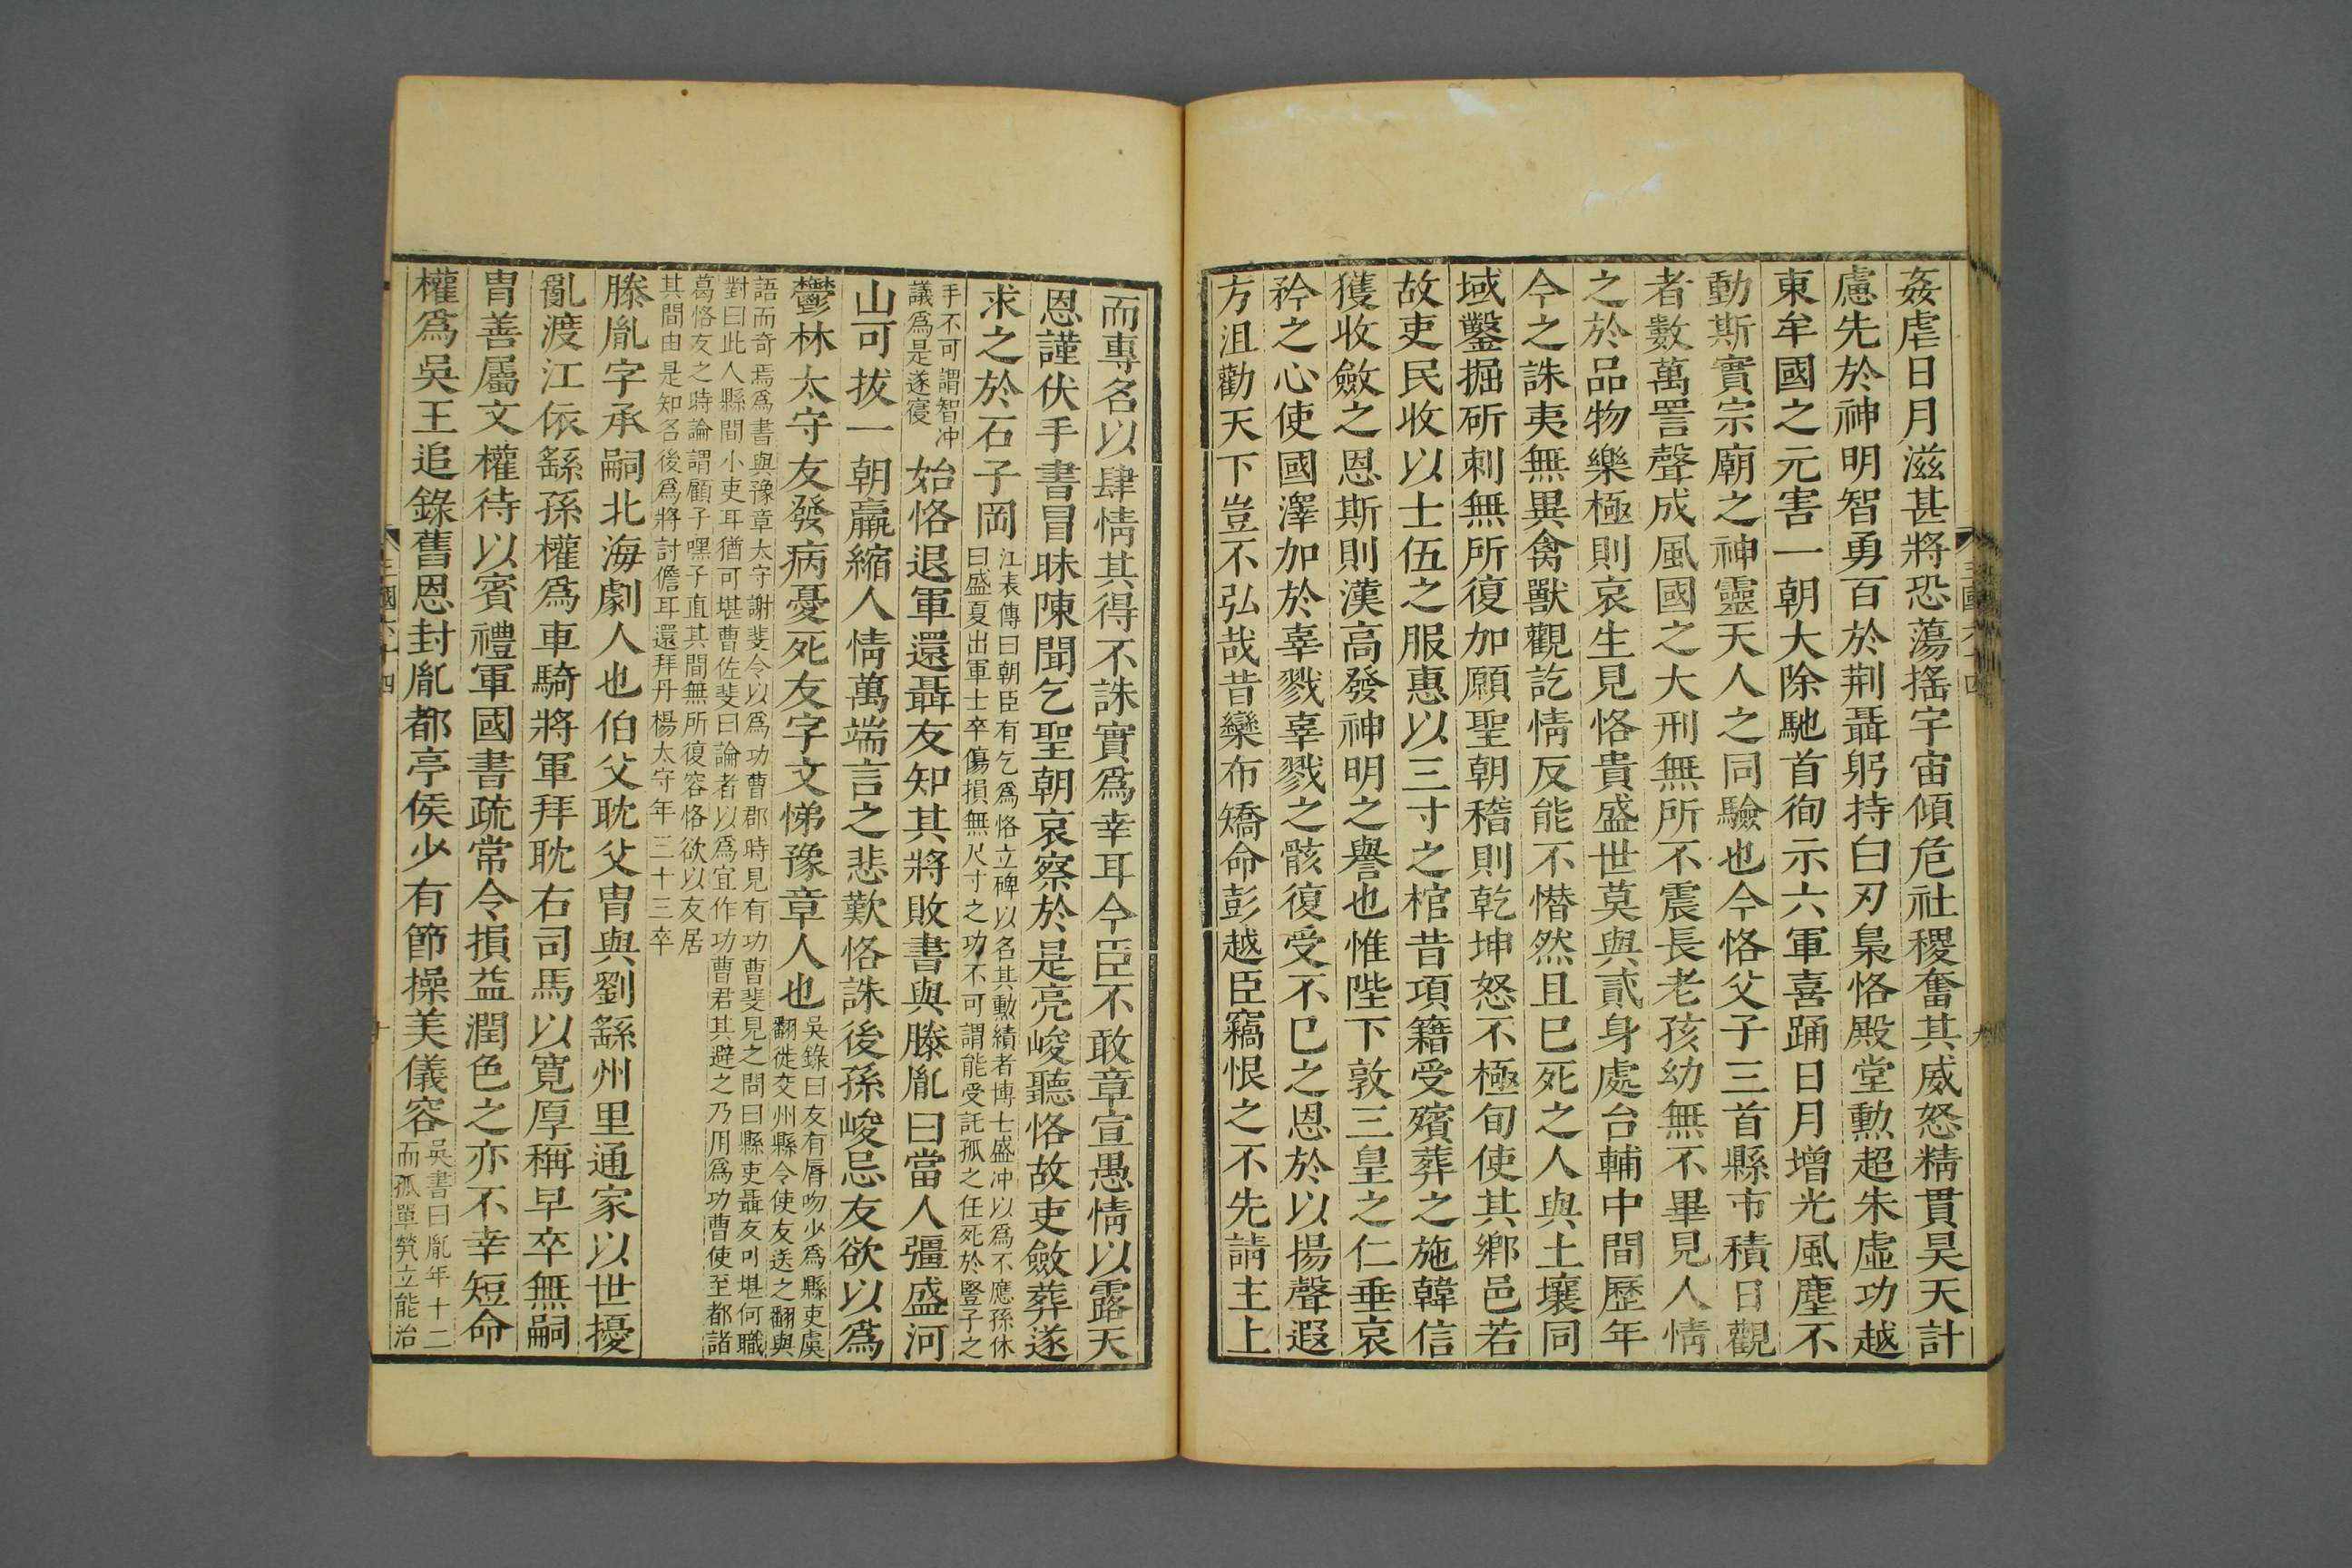 姦虐日月滋甚將恐蕩搖宇宙傾危社稷奮其威怒精貫昊天計
慮先於神明智勇百於荆聶躬持白刃梟恪殿堂勲超朱虛功越
東牟國之元害一朝大除馳首徇示六軍喜踊日月增光風塵不
動斯實宗廟之神靈天人之同驗也今恪父子三首縣市積日觀
者數萬詈聲成風國之大刑無所不震長老孩幼無不畢見人情
之於品物樂極則哀生見恪貴盛世莫與貳身處台輔中間歷年
今之誅夷無異禽獸觀訖情反能不憯然且已死之人與土壤同
域鑿掘斫刺無所復加願聖朝稽則乾坤怒不極旬使其鄉邑若
故吏民收以士伍之服惠以三寸之棺昔項籍受殯葬之施韓信
獲收斂之恩斯則漢高發神明之譽也惟陛下敦三皇之仁垂哀
矜之心使國澤加於辜戮辜戮之骸復受不已之恩於以揚聲遐
方沮勸天下豈不弘哉昔欒布矯命彭越臣竊恨之不先請主上
而專名以肆情其得不誅實爲幸耳今臣不敢章宣愚情以露天
恩謹伏手書冒昧陳聞乞聖朝哀察於是亮峻聽恪故吏斂葬遂
求之於石子岡
江表傳曰朝臣有乞爲恪立碑以名其勲績者博士盛冲以爲不應孫休
曰盛夏出軍士卒傷損無尺寸之功不可謂能受託孤之任死於豎子之
手不可謂智冲
議爲是遂寑
始恪退軍還聶友知其將敗書與滕胤曰當人彊盛河
山可拔一朝羸縮人情萬端言之悲歎恪誅後孫峻忌友欲以爲
鬱林太守友發病憂死友字文悌豫章人也
吳錄曰友有脣吻少爲縣吏虞
翻徙交州縣令使友送之翻與
語而奇焉爲書與豫章太守謝斐令以爲功曹郡時見有功曹斐見之問曰縣吏聶友可堪何職
對曰此人縣間小吏耳猶可堪曹佐斐曰論者以爲宜作功曹君其避之乃用爲功曹使至都諸
葛恪友之時論謂顧子嘿子直其間無所復容恪欲以友居
其間由是知名後爲將討儋耳還拜丹楊太守年三十三卒
滕胤字承嗣北海劇人也伯父耽父冑與劉繇州里通家以世擾
亂渡江依繇孫權爲車騎將軍拜耽右司馬以寬厚稱早卒無嗣
冑善屬文權待以賓禮軍國書疏常令損益潤色之亦不幸短命
權爲吳王追錄舊恩封胤都亭侯少有節操美儀容
吳書曰胤年十二
而孤單煢立能治